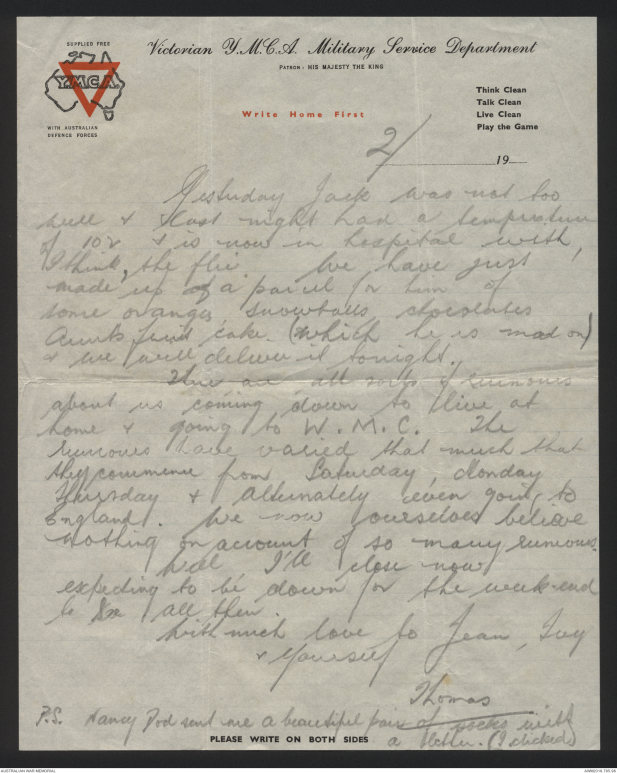 SUPPLIED FREE
Y.M.C.A.
WITH AUSTRALIAN
DEFENCE FORCES
Victorian Y.M.C.A. Military Service Department
PATRON: HIS MAJESTY THE KING
Write Home First
Think Clean
Talk Clean
Live Clean
Play the Game
2/ 19
Yesterday Jack was not too
well & last night had a temperature
of 102 & is now in hospital with,
I think, the flu. We have just
made up a parcel for him of
some oranges, snowballs, chocolates
Aunts fruit cake. (which he is mad on)
& we will deliver it tonight.
There are all sorts of rumours
about us coming down to live at
home & going to W.M.C. The
rumours have varied that much that
they commence from Saturday, Monday
Thursday & alternately even going to
England. We now ourselves believe
nothing on account of so many rumours.
Well I'll close now
expecting to be down for the week-end
to all then.
With much love to Jean, Ivy
& Yourself
Thomas
P.S. Nancy Dod sent me a beautiful pair of socks with
a letter. (I clicked)
PLEASE WRITE ON BOTH SIDES
AUSTRALIAN WAR MEMORIAL